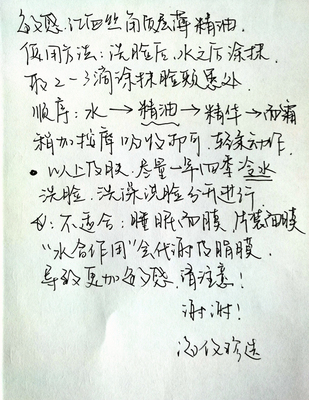 敏感.红血丝角质层薄精油.
使用方法:洗脸后.水之后涂抹.
取2-3滴涂抹脸颈患处.
顺序:水→精油→精华→面霜
稍加按摩吸收即可.轻柔动作.
•以上皮肤.尽量一年四季冷水
洗脸.洗澡洗脸分开进行.
不适合:睡眠面膜 片装面膜
"水合作用"会代谢皮脂膜.
导致更加敏感.请注意!
谢谢!